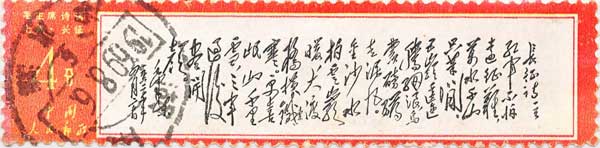 毛主席诗词
长征
4分
中国
人民邮政
長征诗一首
红軍不怕
远征難
萬水千山
只等闲
五嶺逶迤
腾细浪乌
蒙磅礴
走泥丸
金沙水
拍雲崖
暖大渡
橋横鐵
索寒更喜
岷山千里
雪三軍
过後
尽開
颜
毛泽东